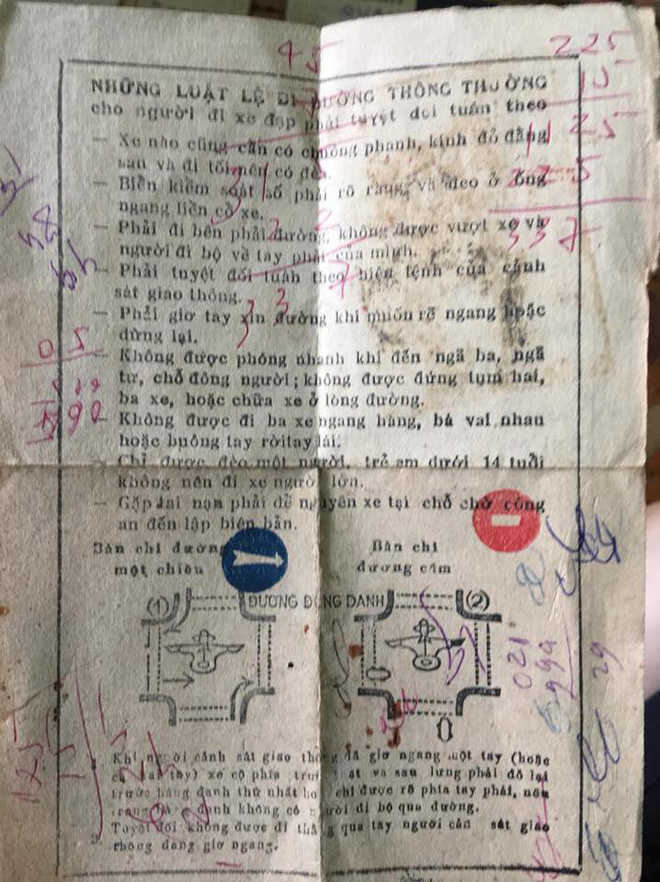 45
225
15
NHỮNG LUẬT LỆ ĐI ĐƯỜNG THÔNG THƯỜNG
cho người đi xe đạp phải tuyệt đối tuân theo
— Xe nào cũng cần có chuông phanh, kính đỏ đằng
sau và đi tối nên có đèn.
— Biển kiểm soát số phải rõ ràng, và đeo ở ống
ngang liền cổ xe.
— Phải đi bên phải đường, không được vượt xe và
người đi bộ về tay phải của mình.
— Phải tuyệt đối tuân theo hiệu lệnh của cảnh
sát giao thông.
— Phải giơ tay xin đường khi muốn rẽ ngang hoặc
dừng lại.
— Không được phóng nhanh khi đến ngã ba, ngã
tư, chỗ đông người; không được đứng tụm hai,
ba xe, hoặc chữa xe ở lòng đường.
— Không được đi ba xe ngang hàng, bá vai nhau
hoặc buông tay rời tay lái.
Chỉ được đèo một người, trẻ em dưới 14 tuổi
không nên đi xe người lớn.
— Gặp tai nạn phải để nguyên xe tại chỗ chờ công
an đến lập biên bản.
Bản chỉ đường
một chiều
Bản chỉ
đường cấm
(1) ĐƯỜNG ĐÔNG DANH (2)
021
999
29
Khi người cảnh sát giao thông đã giơ ngang một tay (hoặc
cả hai tay) xe cộ phía trước mặt và sau lưng phải đỗ lại
trước hàng đanh thứ nhất chỉ được rẽ phía tay phải, nếu
trong đanh không có người đi bộ qua đường.
Tuyệt đối không được đi thẳng qua tay người cảnh sát giao
thông đang giơ ngang.